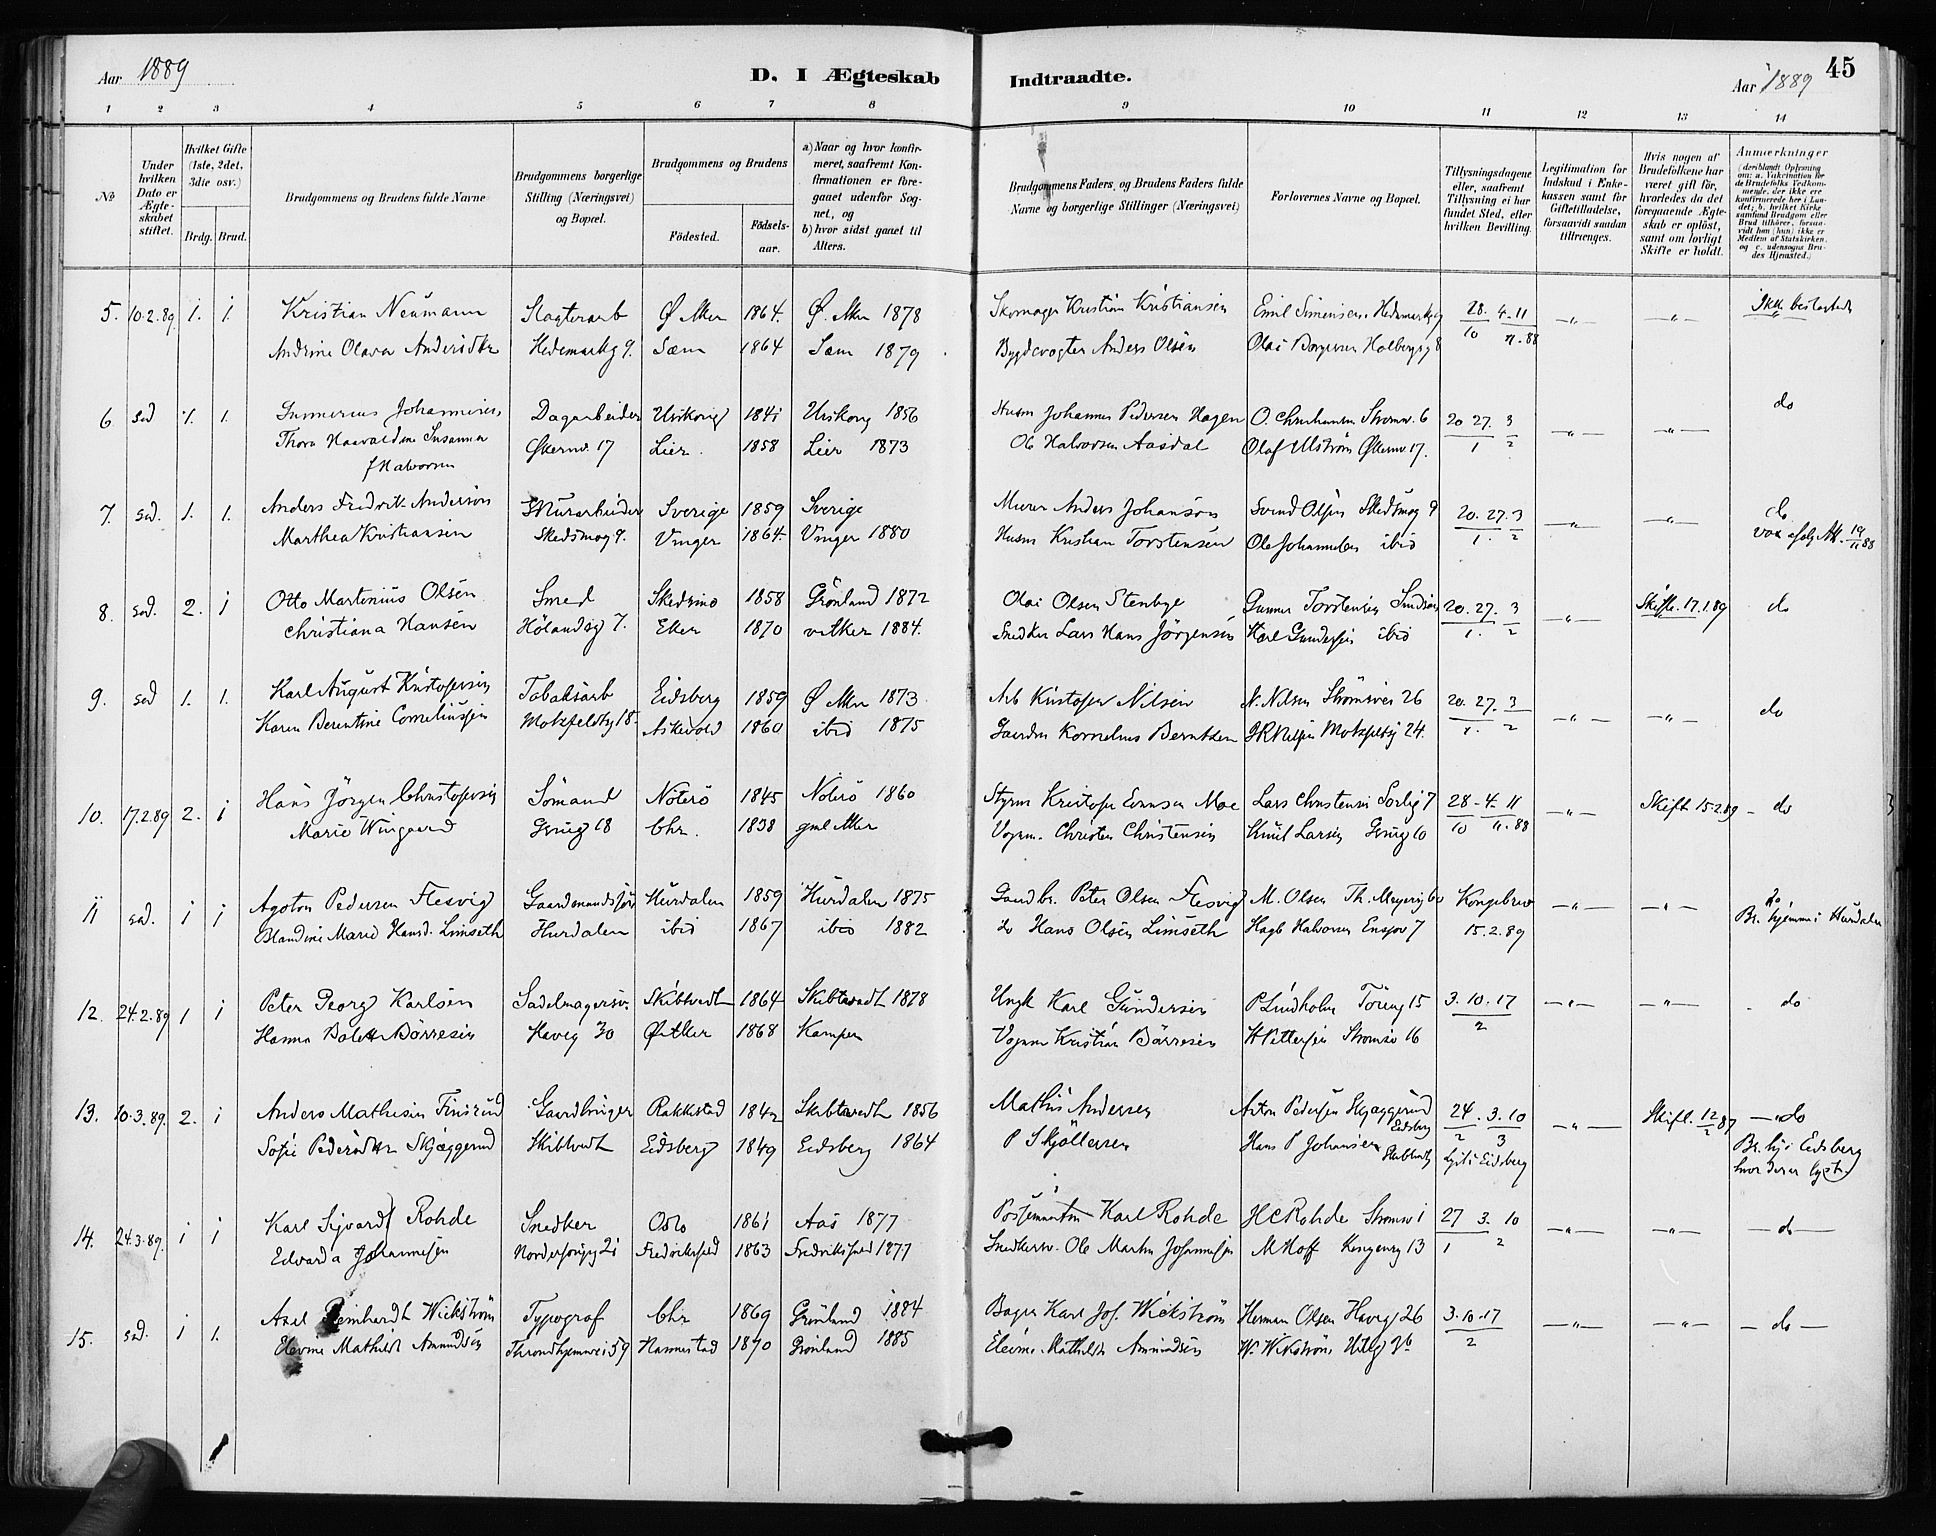 Aar 1889
D. I Ægteskab Indtraadte.
Aar 1889
45
1 2 3 4 5 6 7 8 9 10 11 12 13 14
№
Under hvilken Dato er Ægte-skabet stiftet.
Hvilket Gifte (1ste, 2det, 3die osv.)
Brdg. Brud.
Brudgommens og Brudens fulde Navne
Brudgommens borgerlige Stilling (Næringsvei) og Bopæl.
Brudgommens og Brudens
Fødested.
Fødsels-aar.
a) Naar og hvor konfir-meret, saafremt Kon-firmationen er fore-gaaet udenfor Sog-net, og
b) hvor sidst gaaet til Alters.
Brudgommens Faders, og Brudens Faders fulde Navne og borgerlige Stillinger (Næringsvei)
Forlovernes Navne og Bopæl.
Tillysningsdagene eller, saafremt Tillysning ei har fundet Sted, efter hvilken Bevilling.
Legitimation for Indskud i Enke-kassen samt for Giftetilladelse, forsaavidt saadan tiltrænges.
Hvis nogen af Brudefolkene har været gift før, hvorledes da det foregaaende Ægte-skab er opløst, samt om lovligt Skifte er holdt.
Anmærkninger
(deriblandt Oplysning om: a. Vakcination for de Brudefolks Vedkom-mende, der ikke ere konfirmerede her i Lan-det; b. hvilket Kirke-samfund Brudgom eller Brud tilhører, forsaa-vidt han (hun) ikke er Medlem af Statskirken, og c. udensogns Bru-des Hjemsted.)
5. 10.2.89 1. 1. Kristian Neumann Slagterarb Ø. Aker 1864. Ø. Aker 1878 Skomager Kristian Kristiansen Emil Simensen. Hedemarkg 28. 4. 11 —"— —"— Ikke beslægtede
Andrine Olava Andersdtr Hedemarkg 9. Sæm 1864 Sæm 1879 Bygdevogter Anders Olsen Olai Borgersen Holbergsg 8 10 11.88
6. sad 1. 1. Johannesen Dagarbeider Urskoug 1841 Urskoug 1856 Husm Johannes Pedersen Hagen O. Christiansen Strømsv. 6 20 27. 3 —"— —"— do
Thora Haavaldine Susanna Økernv. 17 Lier. 1858 Lier 1873 Ole Halvorsen Aasdal Olaf Ulström Økernv 17. 1 2
f Halvorsen
7. sad. 1. 1. Anders Fredrik Anderson Murarbeider Sverige 1859 Sverige Murer Anders Johanson Svend Olsen Skedsmog 9 20. 27. 3 —"— —"— do
Marthea Kristiansen Skedsmog 9. Vinger 1864. Vinger 1880 Husm Kristian Torstensen Ole Johannesen ibid 1. 2
8. sad. 2. 1 Otto Martenius Olsen Smed Skedsmo 1858 Grønland 1872 Olai Olsen Stenbye Gunner Torstensen 20. 27. 3 —"— Skifte. 17.1.89 do
Christiana Hansen Hölandsg 7. Eker 1870 v Aker 1884. Snedker Lars Hans Jörgensen Karl Gundersen ibid 1. 2
9. sad 1. 1. Karl August Kristofersen Tobaksarb Eidsberg 1859 Ø Aker 1873 Arb Kristofer Nilsen N. Nilsen Strømsvei 26 20. 27. 3 —"— —"— do
Karen Berentine Corneliussen Motzfeldtsg 18. Askevold 1860 ibid 1875 Gaardm Kornelius Berntsen Motzfeldtsg 24. 1. 2
10. 17.2.89 2. 1 Hans Jörgen Christofersen Sömand Nöterö 1845 Nöterö 1860 Styrm Kristofer Evensen Moe Lars Christensen Sorlig 7 28-4. 11 —"— Skift 15.2.89 - do
Marie Wingaard Grüg 18 Chr. 1838 gml Aker Vognm. Christen Christensen Knut Larsen Grüg 10 10 11.88
11 sad. 1 1 Agaton Pedersen Flesvig Hurdalen 1859 Hurdalen 1875 Gaardbr. Peter Olsen Flesvig M. Olsen Th. Meyersg 60 Kongebrev —"— —"— do
Blandine Marie Hansd. Limseth Hurdalen ibid 1867 ibid 1882 do Hans Olsen Limseth Hagb Halvorsen Ensjøv 7 15.2.89 Br. hjemme i Hurdalen
12. 24.2.89 1 1 Peter Georg Karlsen Sadelmagersv. Skibtvedt 1864 Skibtvedt 1878 Ungk Karl Gundersen P Lindholm Töieng 15 3. 10. 17 —"— —"— do
Hanna Bolette Börresen Haveg 30 Ø Aker 1868 Kampen Vognm Kristian Börresen H Pettersen Strømsv 16 2
13. 10.3.89. 2. 1 Anders Mathisen Finsrud Gaardbruger Rakkestad 1842 Skibtvedt 1856 Mathis Andersen Anton Pedersen Skjæggerud Eidsberg 24. 3. 10 —"— Skift. 12/2 87 —"do
Sofie Pedersdtr Skjæggerud Skibtvedt Eidsberg 1849 Eidsberg 1864 P Skjöllersen Hans P Johansen Skibtvedt 2 3 Lyst i Eidsberg Br. hj. i Eidsberg hvor der er lyst.
14. 24.3.89. 1 1 Karl Sigvard Rohde Snedker Oslo 1861 Aas 1877 Karl Rohde H C Rohde Strømsv 1 27 3. 10 —"— —"— —do—
Edvarda Johannesen Nordrefrigg 21 Fredrikshald 1863 Fredrikshald 1877 Snedkersv. Ole Martin Johannesen M Hoff Kongensg 13 1 2
15. sad. 1 1. Axel Reinhardt Wickström Typograf Chr 1869 Grönland 1884 Bager Karl Joh. Wickström Herman Olsen Haveg 26 3. 10. 17 —"— —"— —do—
Elevine Mathilde Amundsen Throndhjemsvei 59 Hannestad 1870 Grönland 1885 Elevine Mathilde Amundsen W. Wikström 2